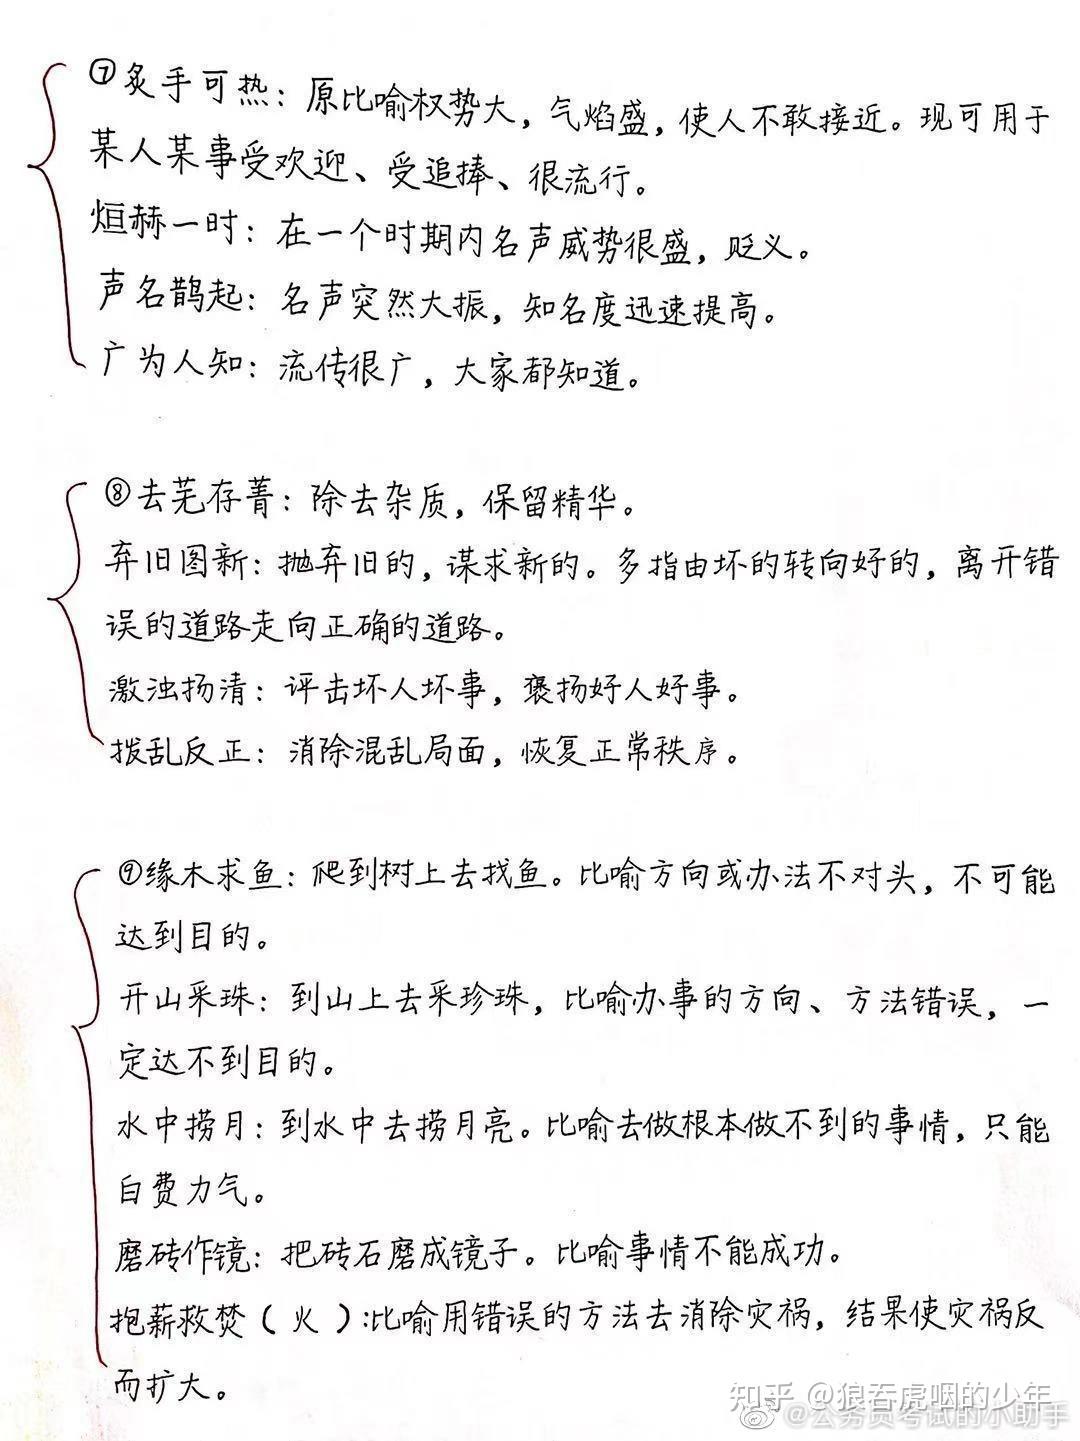 ⑦炙手可热：原比喻权势大，气焰盛，使人不敢接近。现可用于
某人某事受欢迎、受追捧、很流行。
烜赫一时：在一个时期内名声威势很盛，贬义。
声名鹊起：名声突然大振，知名度迅速提高。
广为人知：流传很广，大家都知道。
⑧去芜存菁：除去杂质，保留精华。
弃旧图新：抛弃旧的，谋求新的。多指由坏的转向好的，离开错
误的道路走向正确的道路。
激浊扬清：评击坏人坏事，褒扬好人好事。
拨乱反正：消除混乱局面，恢复正常秩序。
⑨缘木求鱼：爬到树上去找鱼。比喻方向或办法不对头，不可能
达到目的。
开山采珠：到山上去采珍珠，比喻办事的方向、方法错误，一
定达不到目的。
水中捞月：到水中去捞月亮。比喻去做根本做不到的事情，只能
白费力气。
磨砖作镜：把砖石磨成镜子。比喻事情不能成功。
抱薪救焚（火）：比喻用错误的方法去消除灾祸，结果使灾祸反
而扩大。
知乎 @狼吞虎咽的少年
@公务员考试的小助手